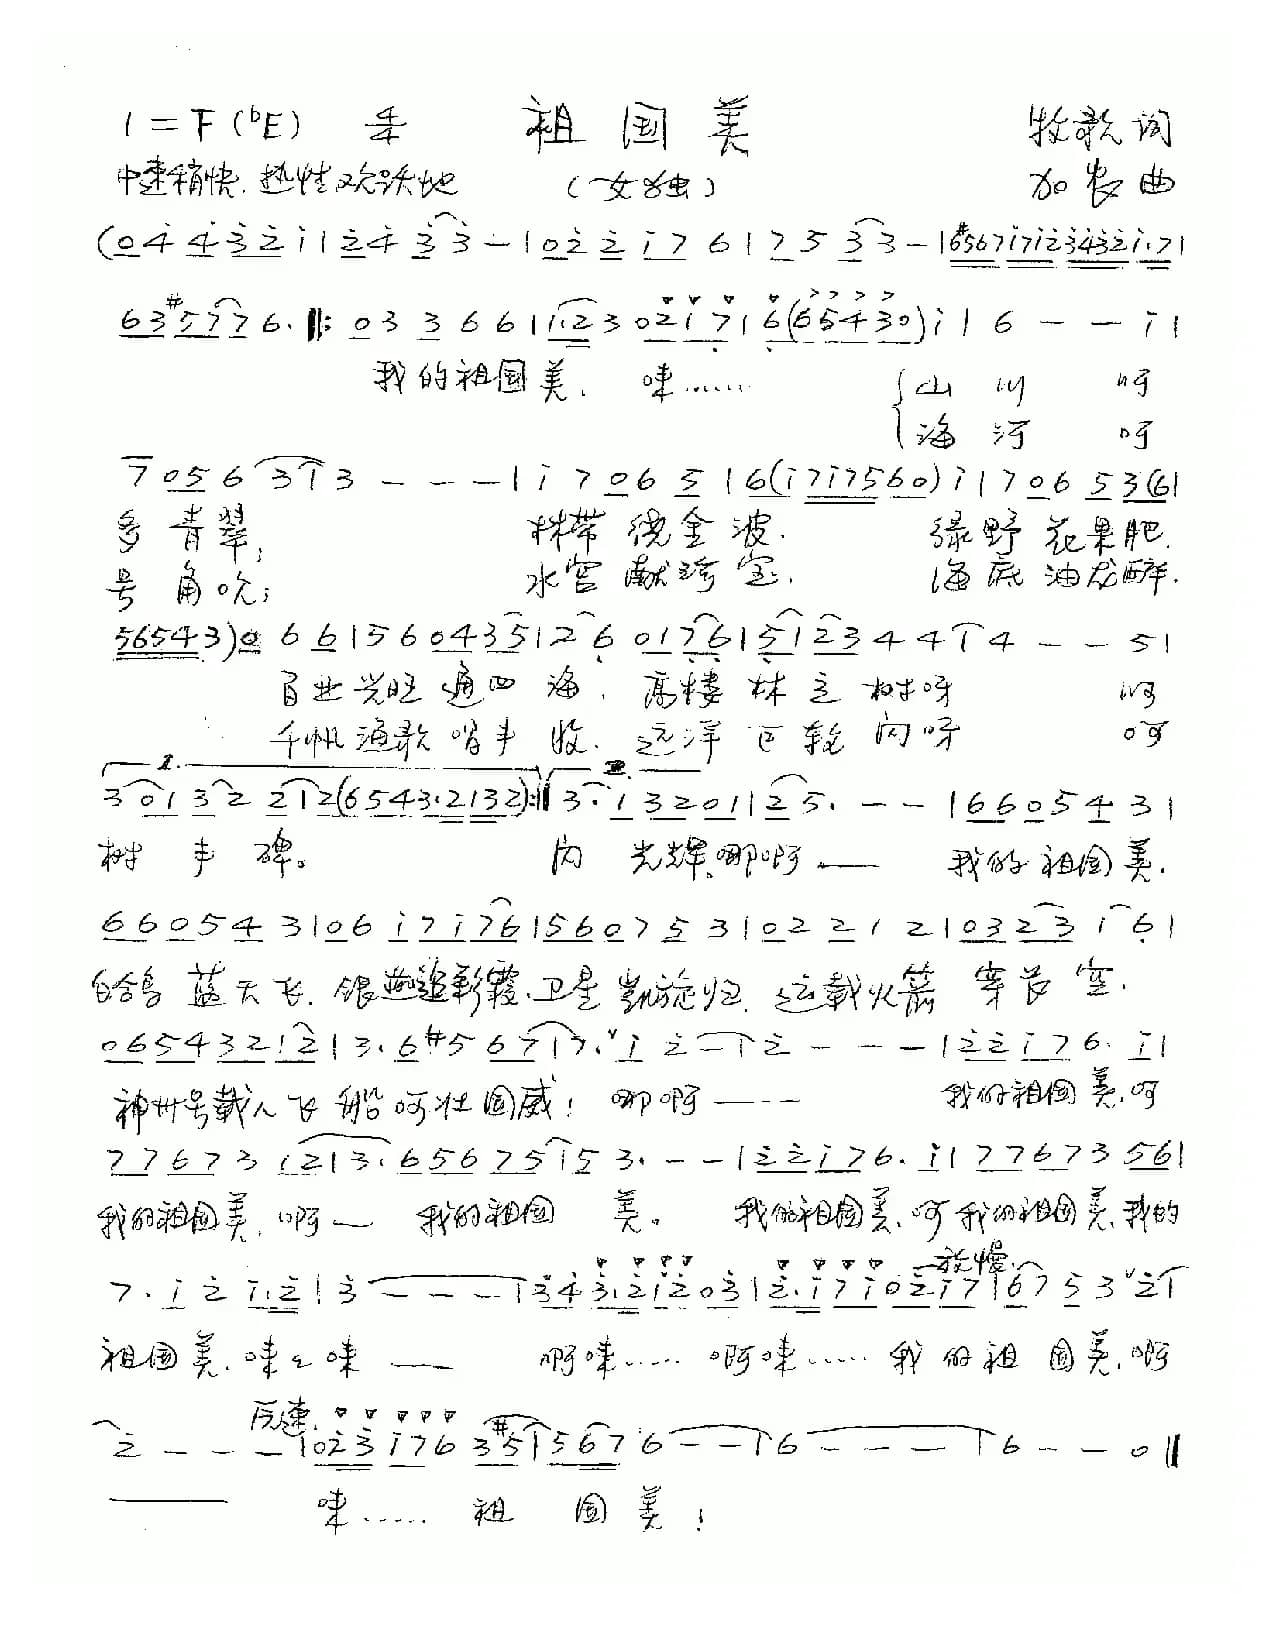 1=F(♭E) 4/4 祖国美 牧歌词
中速稍快.热性欢跃地 (女独) 加农曲
(0 4 4 3 2 i | 2 4 3 3 - | 0 2 2 i 7 6 | 7 5 3 3 - | #6 5 6 7 i 7 i 2 3 4 3 2 i. 7 |
6 3 #5 7 7 6. ‖: 0 3 3 6 6 | i. 2 3 0 2 i 7 | 6 (6 5 4 3 0) i | 6 - - i |
我的祖国美. 唻…… 山川 呵
海河 呵
7 0 5 6 3 | 3 - - - | i 7 0 6 5 | 6 (i 7 i 7 5 6 0) i | 7 0 6 5 3 (6 |
多青翠; 林带绕金波. 绿野花果肥.
号角吹; 水宫献珍宝. 海底油龙醉.
5 6 5 4 3) 0 6 6 | 5 6 0 4 3 5 | 2 6 0 1 7 6 | 5 1 2 3 4 4 4 | 4 - - 5 |
百业兴旺通四海. 高楼林立树呀 呵
千帆渔歌哨丰收. 远洋巨轮闪呀 呵
1. 2.
3 0 1 3 2 2 | 2 (6 5 4 3. 2 1 3 2) :‖ 3. 1 3 2 0 1 | 2 5. - - | 6 6 0 5 4 3 |
树丰碑。 闪光辉.哪啊—— 我的祖国美.
6 6 0 5 4 3 | 0 6 i 7 i 7 6 | 5 6 0 7 5 3 | 0 2 2 1 2 | 0 3 2 3 1 6 |
白鸽蓝天飞. 银燕追彩霞.卫星凯旋归. 运载火箭穿长空.
0 6 5 4 3 2 1 2 | 3. 6 #5 6 7 | 7. ∨ i 2 - | 2 - - - | 2 2 i 7 6. i |
神州号载人飞船呵壮国威! 哪啊—— 我的祖国美.呵
7 7 6 7 3 i 2 | 3. 6 5 6 7 5 | 5 3. - - | 2 2 i 7 6. i | 7 7 6 7 3 5 6 |
我的祖国美. 啊— 我的祖国美。 我的祖国美.呵我的祖国美.我的
放慢
7. i 2 i. 2 | 3 - - - | 3 4 3. 2 i 2 0 3 | 2. i 7 i 0 2 i 7 | 6 7 5 3 ∨ 2 |
祖国美.唻々唻 — 啊唻…… 啊唻……我的祖国美.啊
反速.
2 - - - | 0 2 3 i 7 6 3 #5 | 5 6 7 6 - - | 6 - - - | 6 - - 0 ‖
—— 唻…… 祖国美!